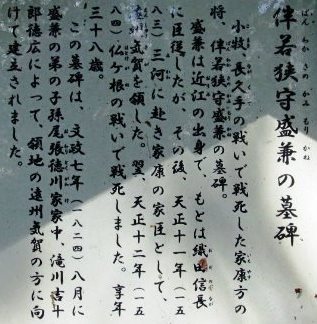 伴若狭守盛兼の墓碑
ばんわかさのかみもりかね
小牧・長久手の戦いで戦死した家康方の
将、伴若狭守盛兼の墓碑。
盛兼は近江の出身で、もとは織田信長
に臣従したが、その後、天正十一年(一五
八三)三河に赴き家康の家臣として、
遠州気賀を領した。翌、天正十二年(一五
八四)仏ヶ根の戦いで戦死しました。享年
三十八歳。
この墓碑は、文政七年(一八二四)八月に
盛兼の弟の子孫尾張徳川家家中、滝川古斗
郎徳広によって、領地の遠州気賀の方に向
けて建立されました。